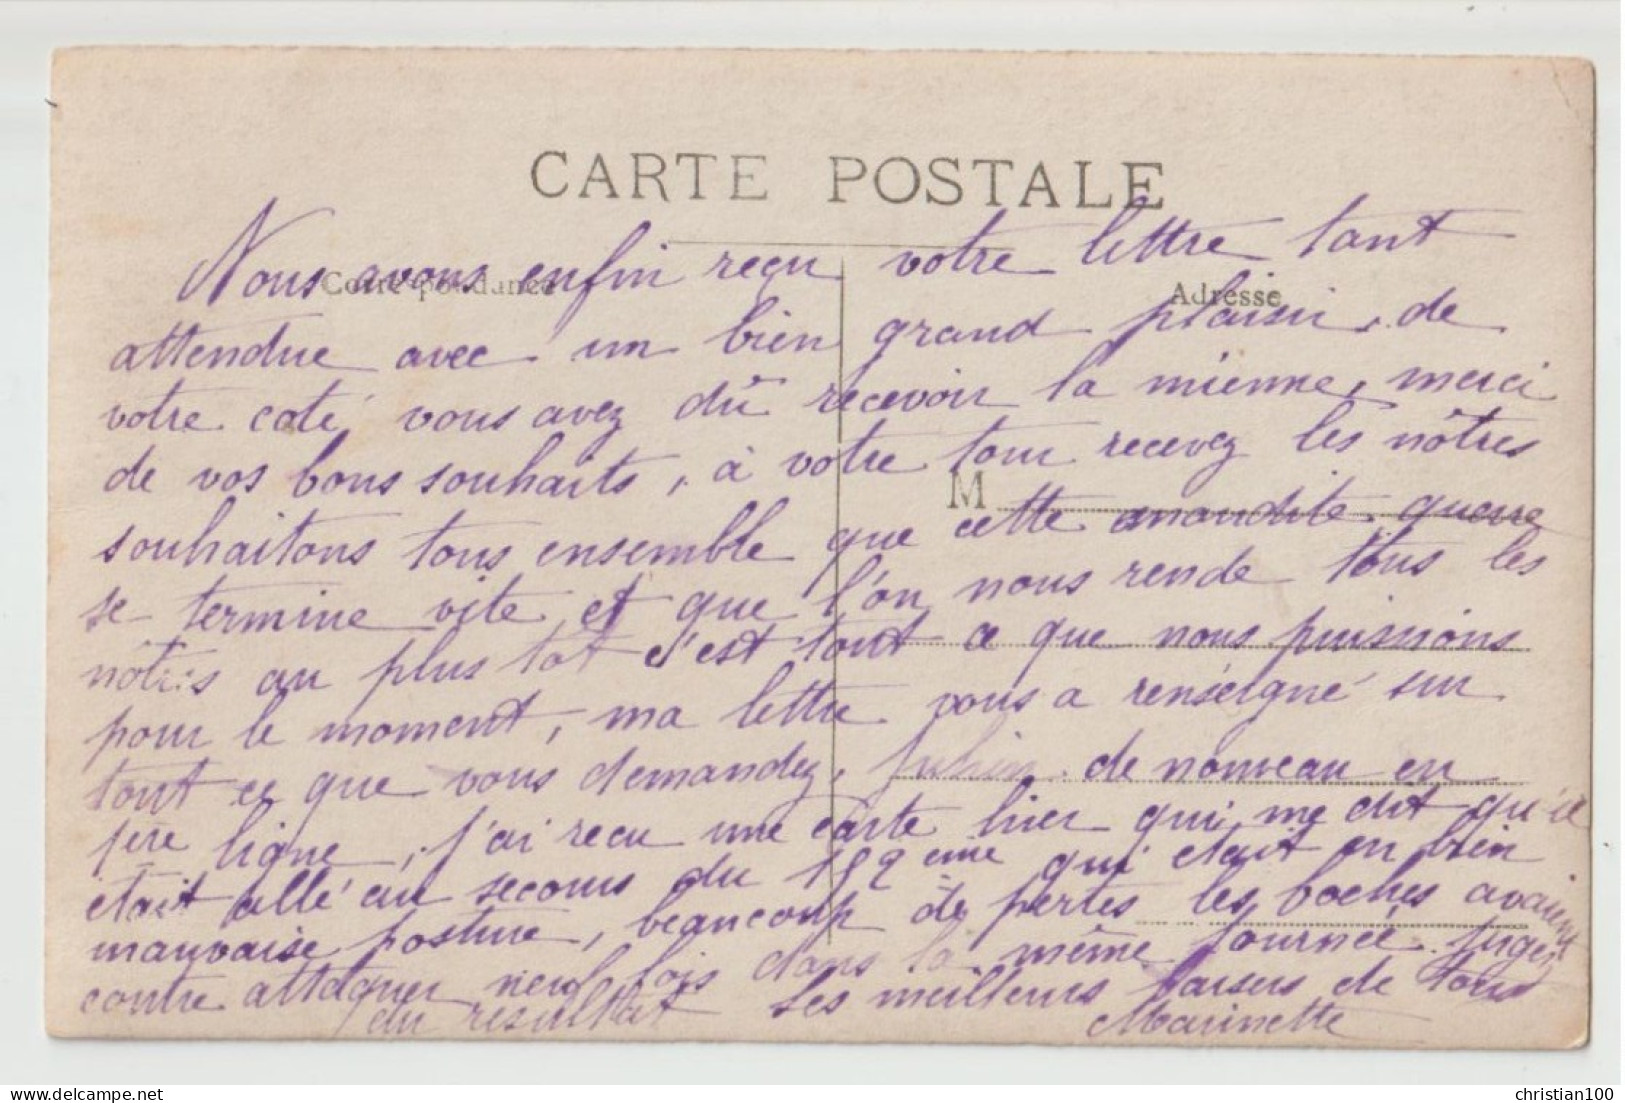 CARTE POSTALE
Correspondance
Adresse
M
Nous avons enfin reçu votre lettre tant
attendue avec un bien grand plaisir, de
votre coté vous avez dû recevoir la mienne, merci
de vos bons souhaits, à votre tour recevez les nôtres
souhaitons tous ensemble que cette maudite guerre
se termine vite et que l'on nous rende tous les
nôtres au plus tôt c'est tout ce que nous puissions
pour le moment, ma lettre vous a renseigné sur
tout ce que vous demandez, Julien de nouveau en
1ère ligne, j'ai recu une carte hier qui me dit qu'il
était allé au secours du 152eme qui était en bien
mauvaise posture, beaucoup de pertes les boches avaient
contre attaquer neuf fois dans la même journée. Jugez
du résultat Les meilleurs baisers de tous
Marinette
christian100